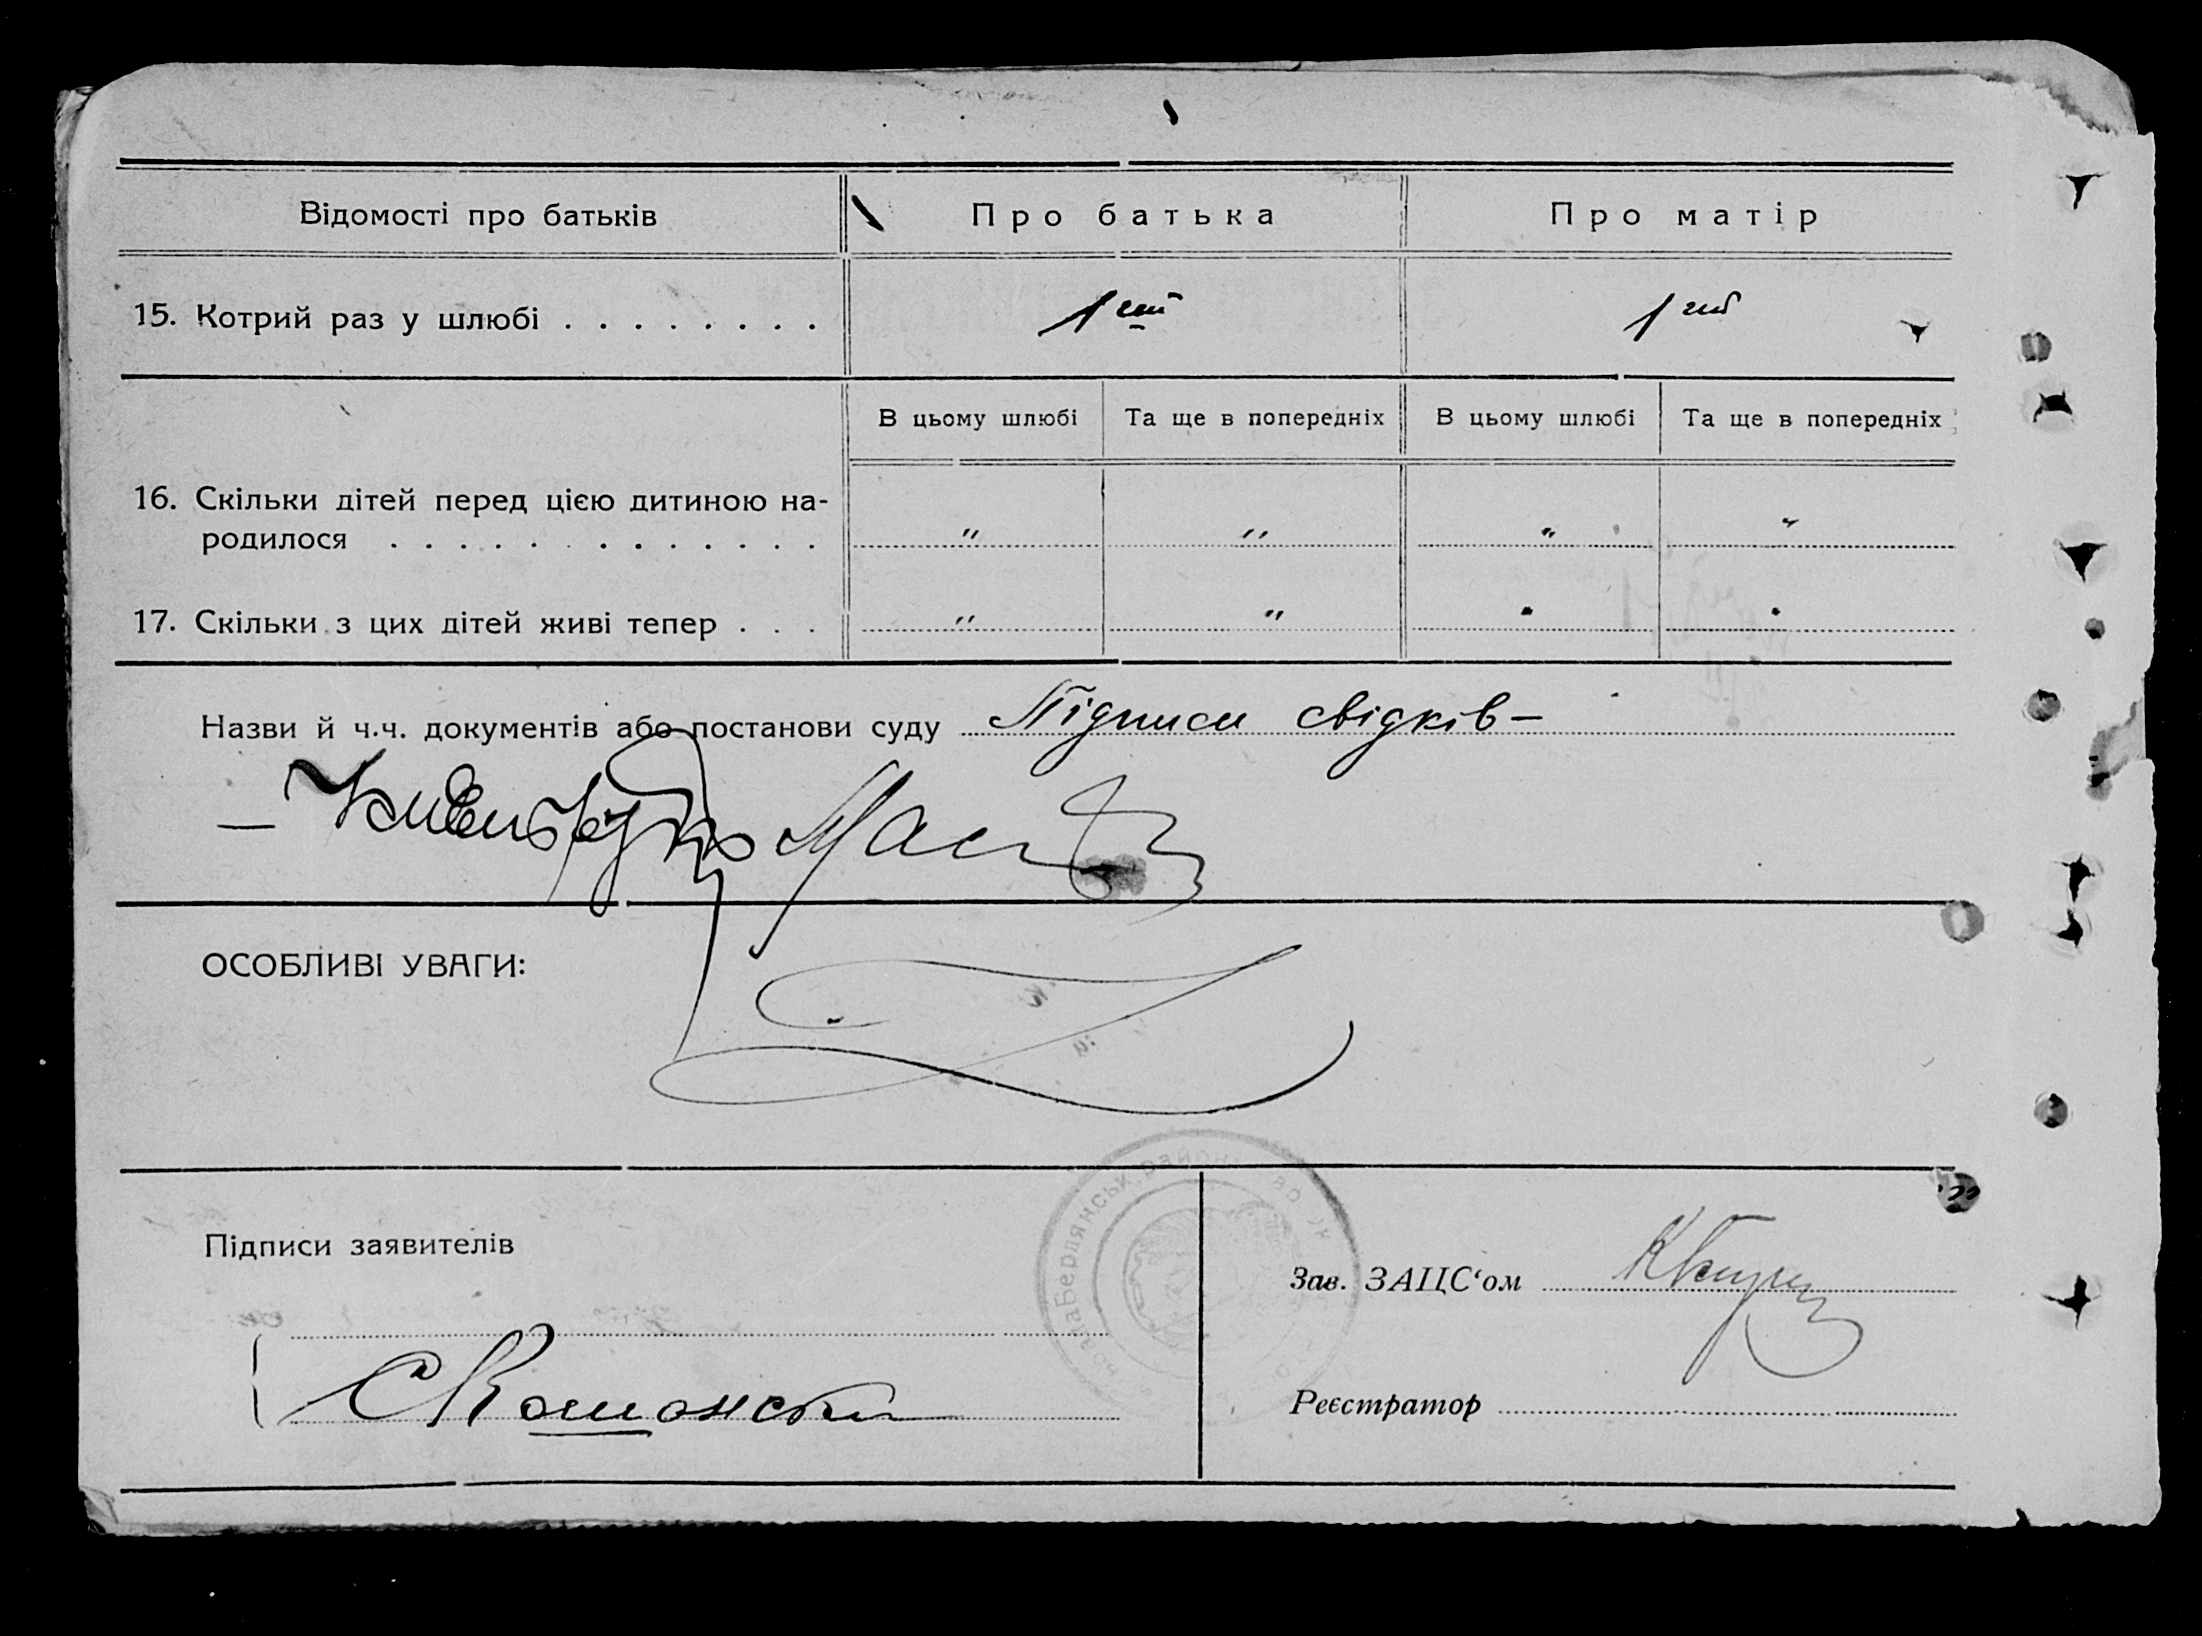 Відомості про батьків Про батька Про матір
15. Котрий раз у шлюбі . . . . . . . . 1ий 1ий
В цьому шлюбі Та ще в попередніх В цьому шлюбі Та ще в попередніх
16. Скільки дітей перед цією дитиною на-
родилося . . . . . . . . . . . . . " " " "
17. Скільки з цих дітей живі тепер . . . " " " "
Назви й ч.ч. документів або постанови суду Підписи свідків —
ОСОБЛИВІ УВАГИ:
Підписи заявителів
Зав. ЗАЦС'ом
Реєстратор